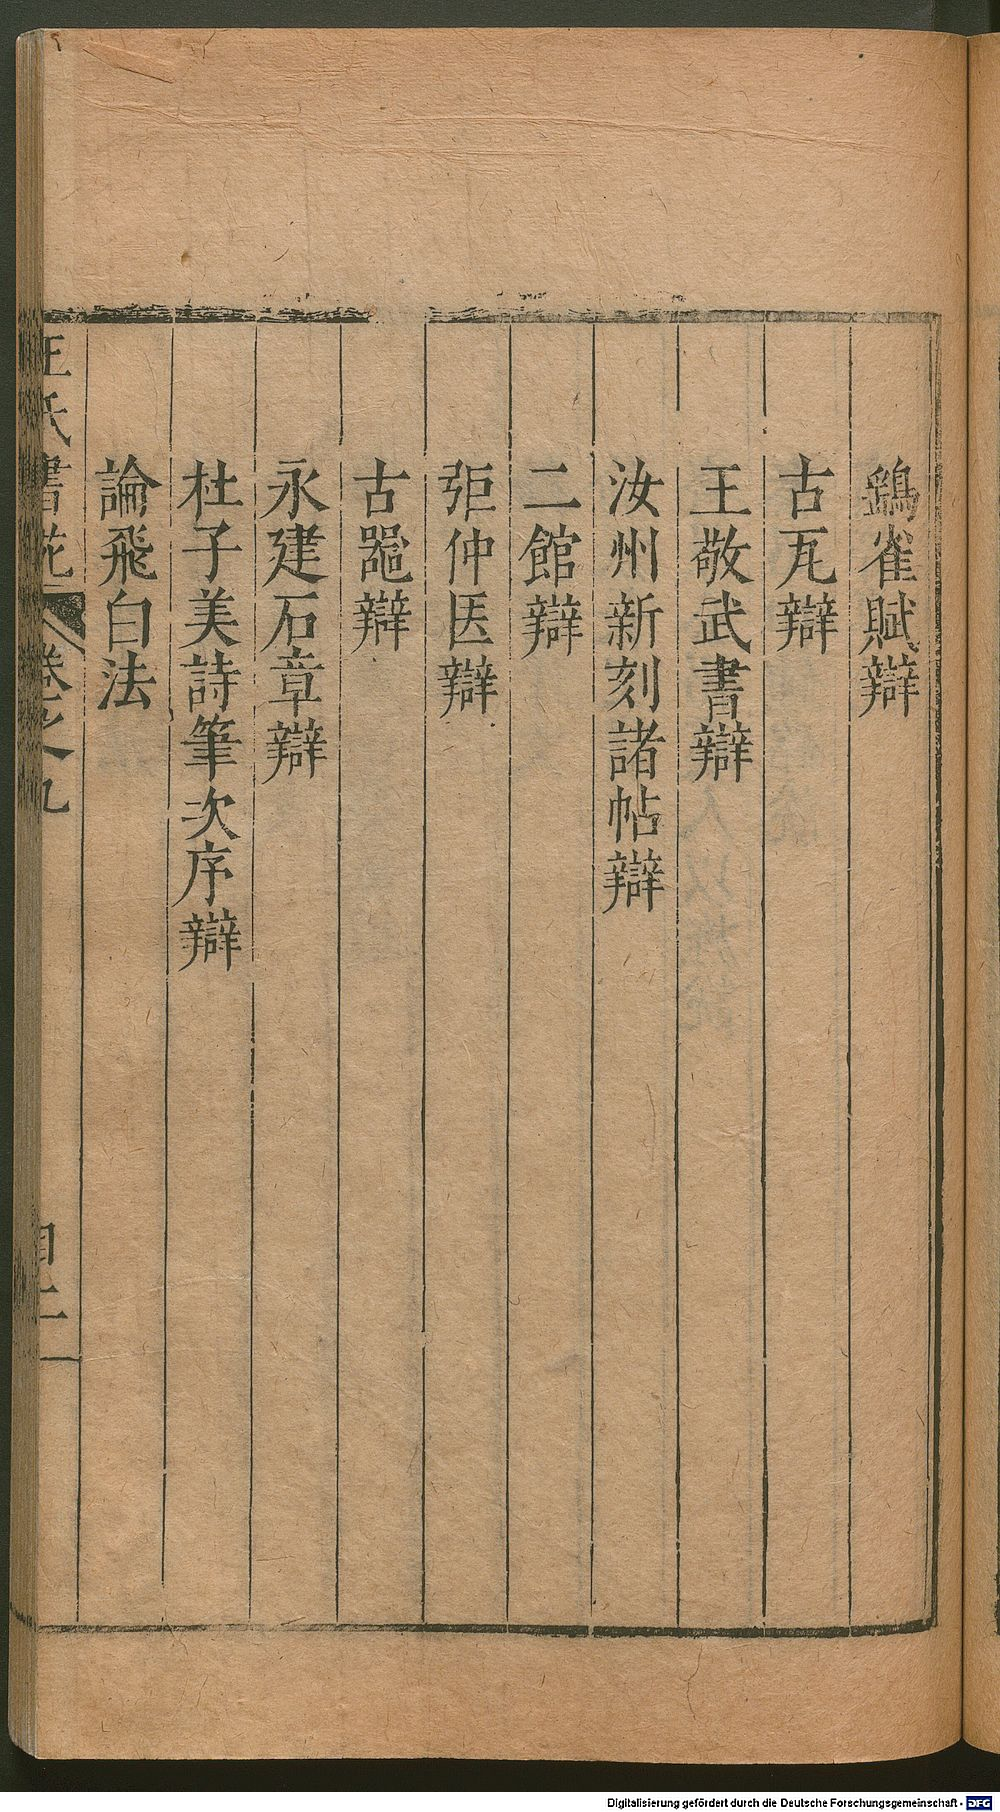 鷂雀賦辯
古瓦辯
王敬武書辯
汝州新刻諸帖辯
二館辯
弡仲匤辯
古器辯
永建石章辯
杜子美詩筆次序辯
論飛白法
王氏書苑 卷之九
目二
Digitalisierung gefördert durch die Deutsche Forschungsgemeinschaft - DFG